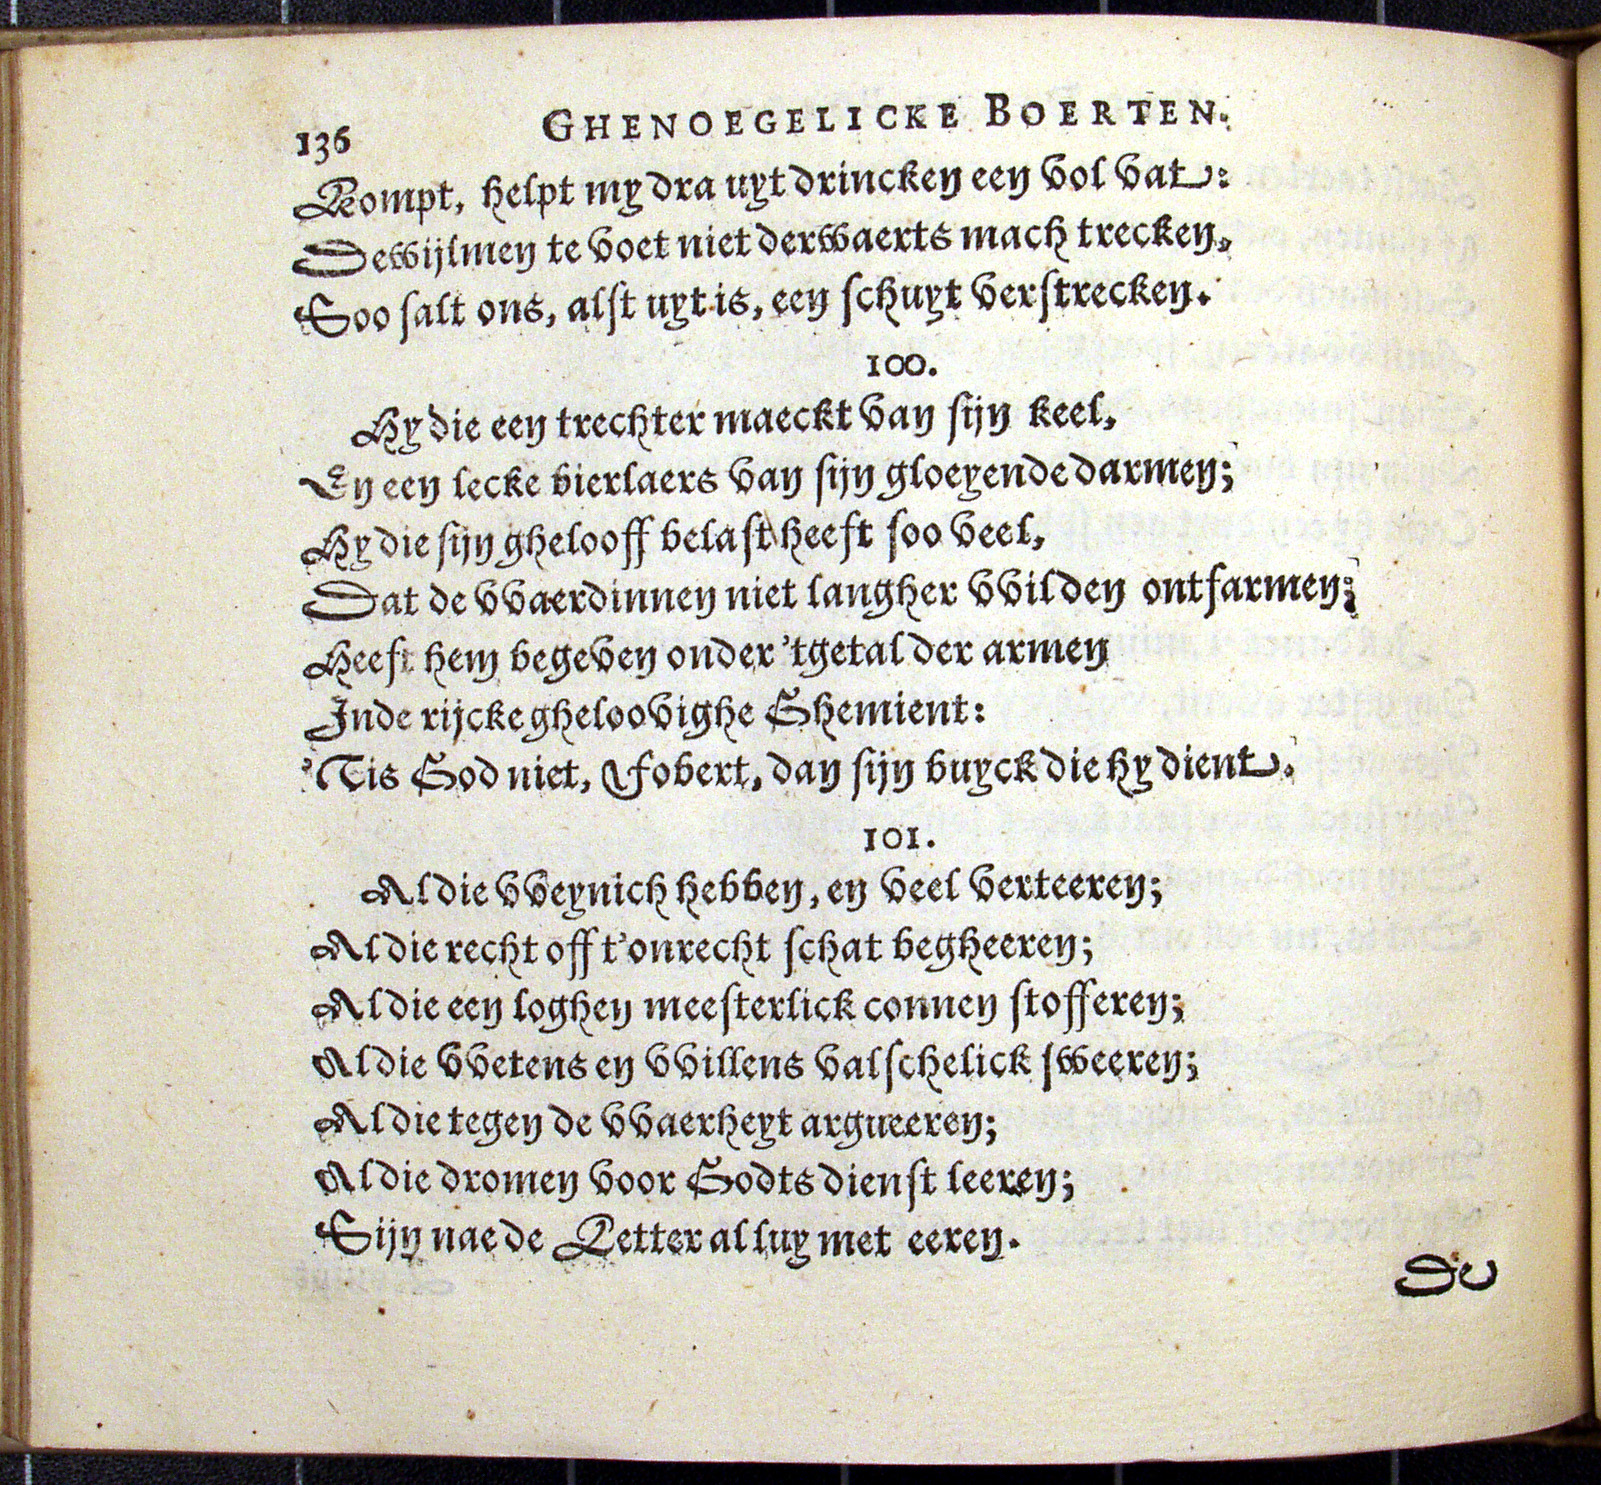 136 GHENOEGELICKE BOERTEN.
Kompt, helpt my dra uyt drincken een vol vat:
Dewijlmen te voet niet derwaerts mach trecken,
Soo salt ons, alst uyt is, een schuyt verstrecken.
100.
Hy die een trechter maeckt van sijn keel,
En een lecke bierlaers van sijn gloeyende darmen;
Hy die sijn ghelooff belast heeft soo veel,
Dat de vvaerdinnen niet langher vvilden ontfarmen;
Heeft hem begeven onder 'tgetal der armen
Inde rijcke gheloovighe Ghemient:
'Tis God niet, Jobert, dan sijn buyck die hy dient.
101.
Al die vveynich hebben, en veel verteeren;
Al die recht off t'onrecht schat begheeren;
Al die een loghen meesterlick connen stofferen;
Al die vvetens en vvillens valschelick sweeren;
Al die tegen de vvaerheyt argueeren;
Al die dromen voor Godts dienst leeren;
Sijn nae de Letter al luy met eeren.
De